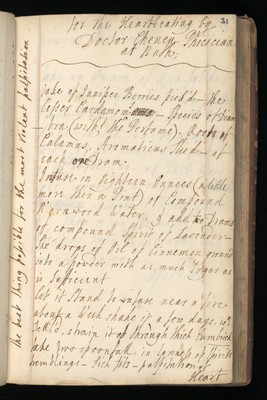 31
for the Heartbeating by
Doctor Cheney Phiscician
at Bath
Take of Juniper Berries pick'd - the
Lesser Cardamom - Species of Diam-
-bra (with the Perfume) - Roots of
Calamus, Aromaticus Seeds - of
each one Dram.
Infuse in Eighteen Ounces (a little
more then a Pint) of Compound
water, & add Drams
of compound Spirit of Lavender -
Six drops of Oil of Cinnemon ground
into a powder with as much Sugar as
is Sufficient
Let it Stand to infuse near a fire
about a Week shake it a few days
strain it of through thick
take two spoonfull in Lowness of Spirits
tremblings - Sick fits - palpitation of
Heart
the best thing possible for the most violent palpitation